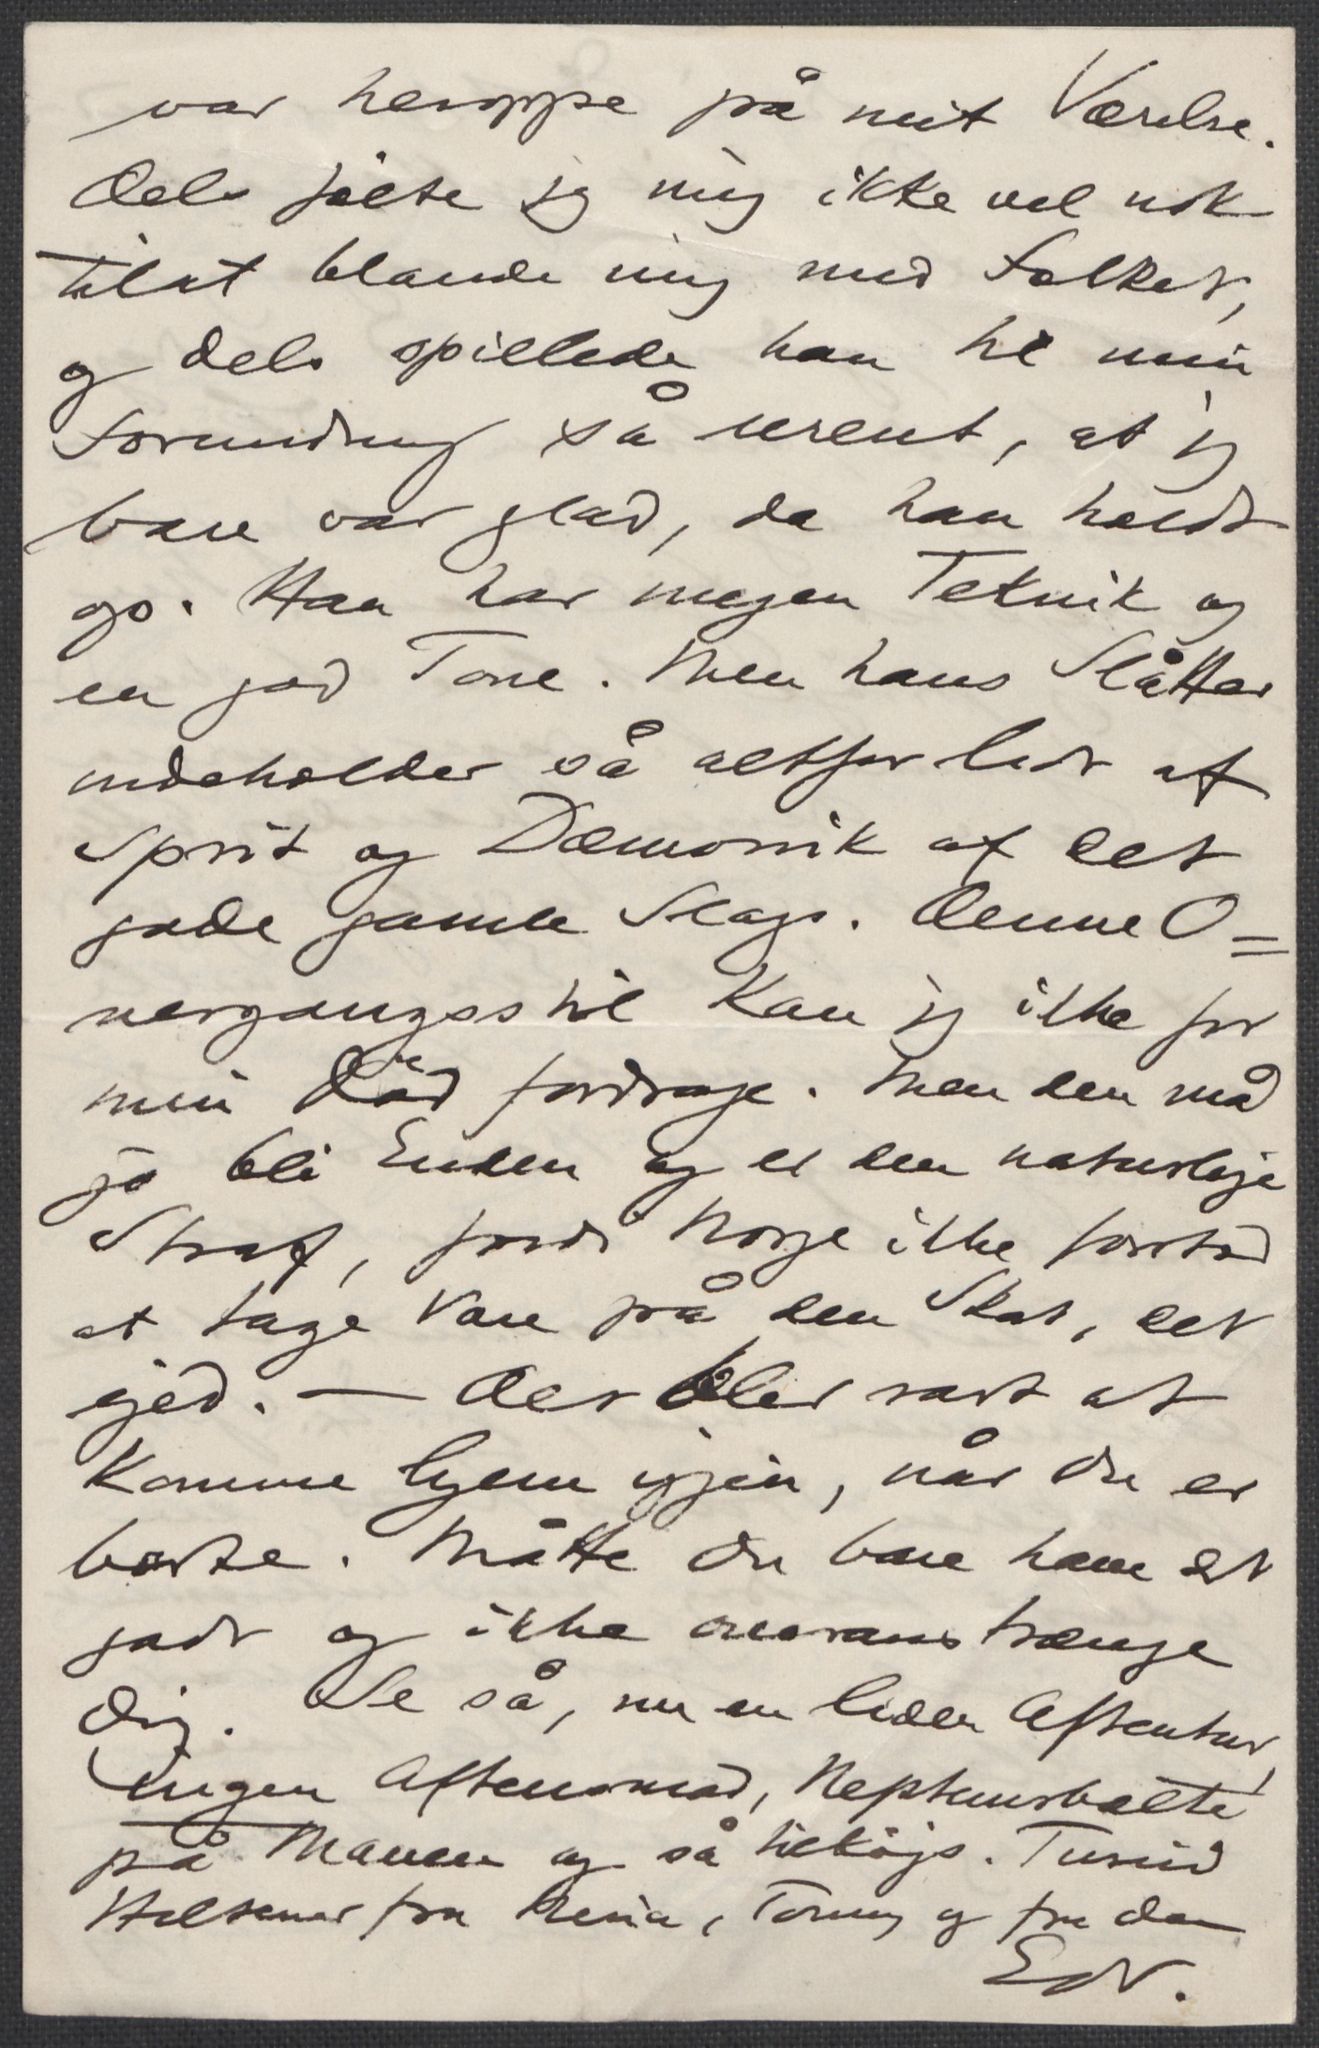 var heroppe på mit Værelse.
Dels følte jeg mig ikke vel nok
tilat blande mig med Folket,
og dels spillede han til min
Forundring så urent, at jeg
bare var glad, da han holdt
op. Han har megen Teknik og
en god Tone. Men hans Slåtter
indeholder så altfor lidt af
Sprit og Dæmonik af det
gode gamle Slags. Denne O=
vergangsstil kan jeg ikke for
min Død fordrage. Men den må
jo bli Enden og er den naturlige
Straf, fordi Norge ikke forstod
at tage Vare på den Skat, det
ejed. — Det blir rart at
komme hjem igjen, når du er
borte. Måtte du bare have det
godt og ikke overanstrænge
dig. Se så, nu en liden Aftentur,
ingen Aftensmad, Neptunsbælte
på Maven og så tilkøjs. Tusind
Hilsener fra Nina, Tonny og fra den
Edv.